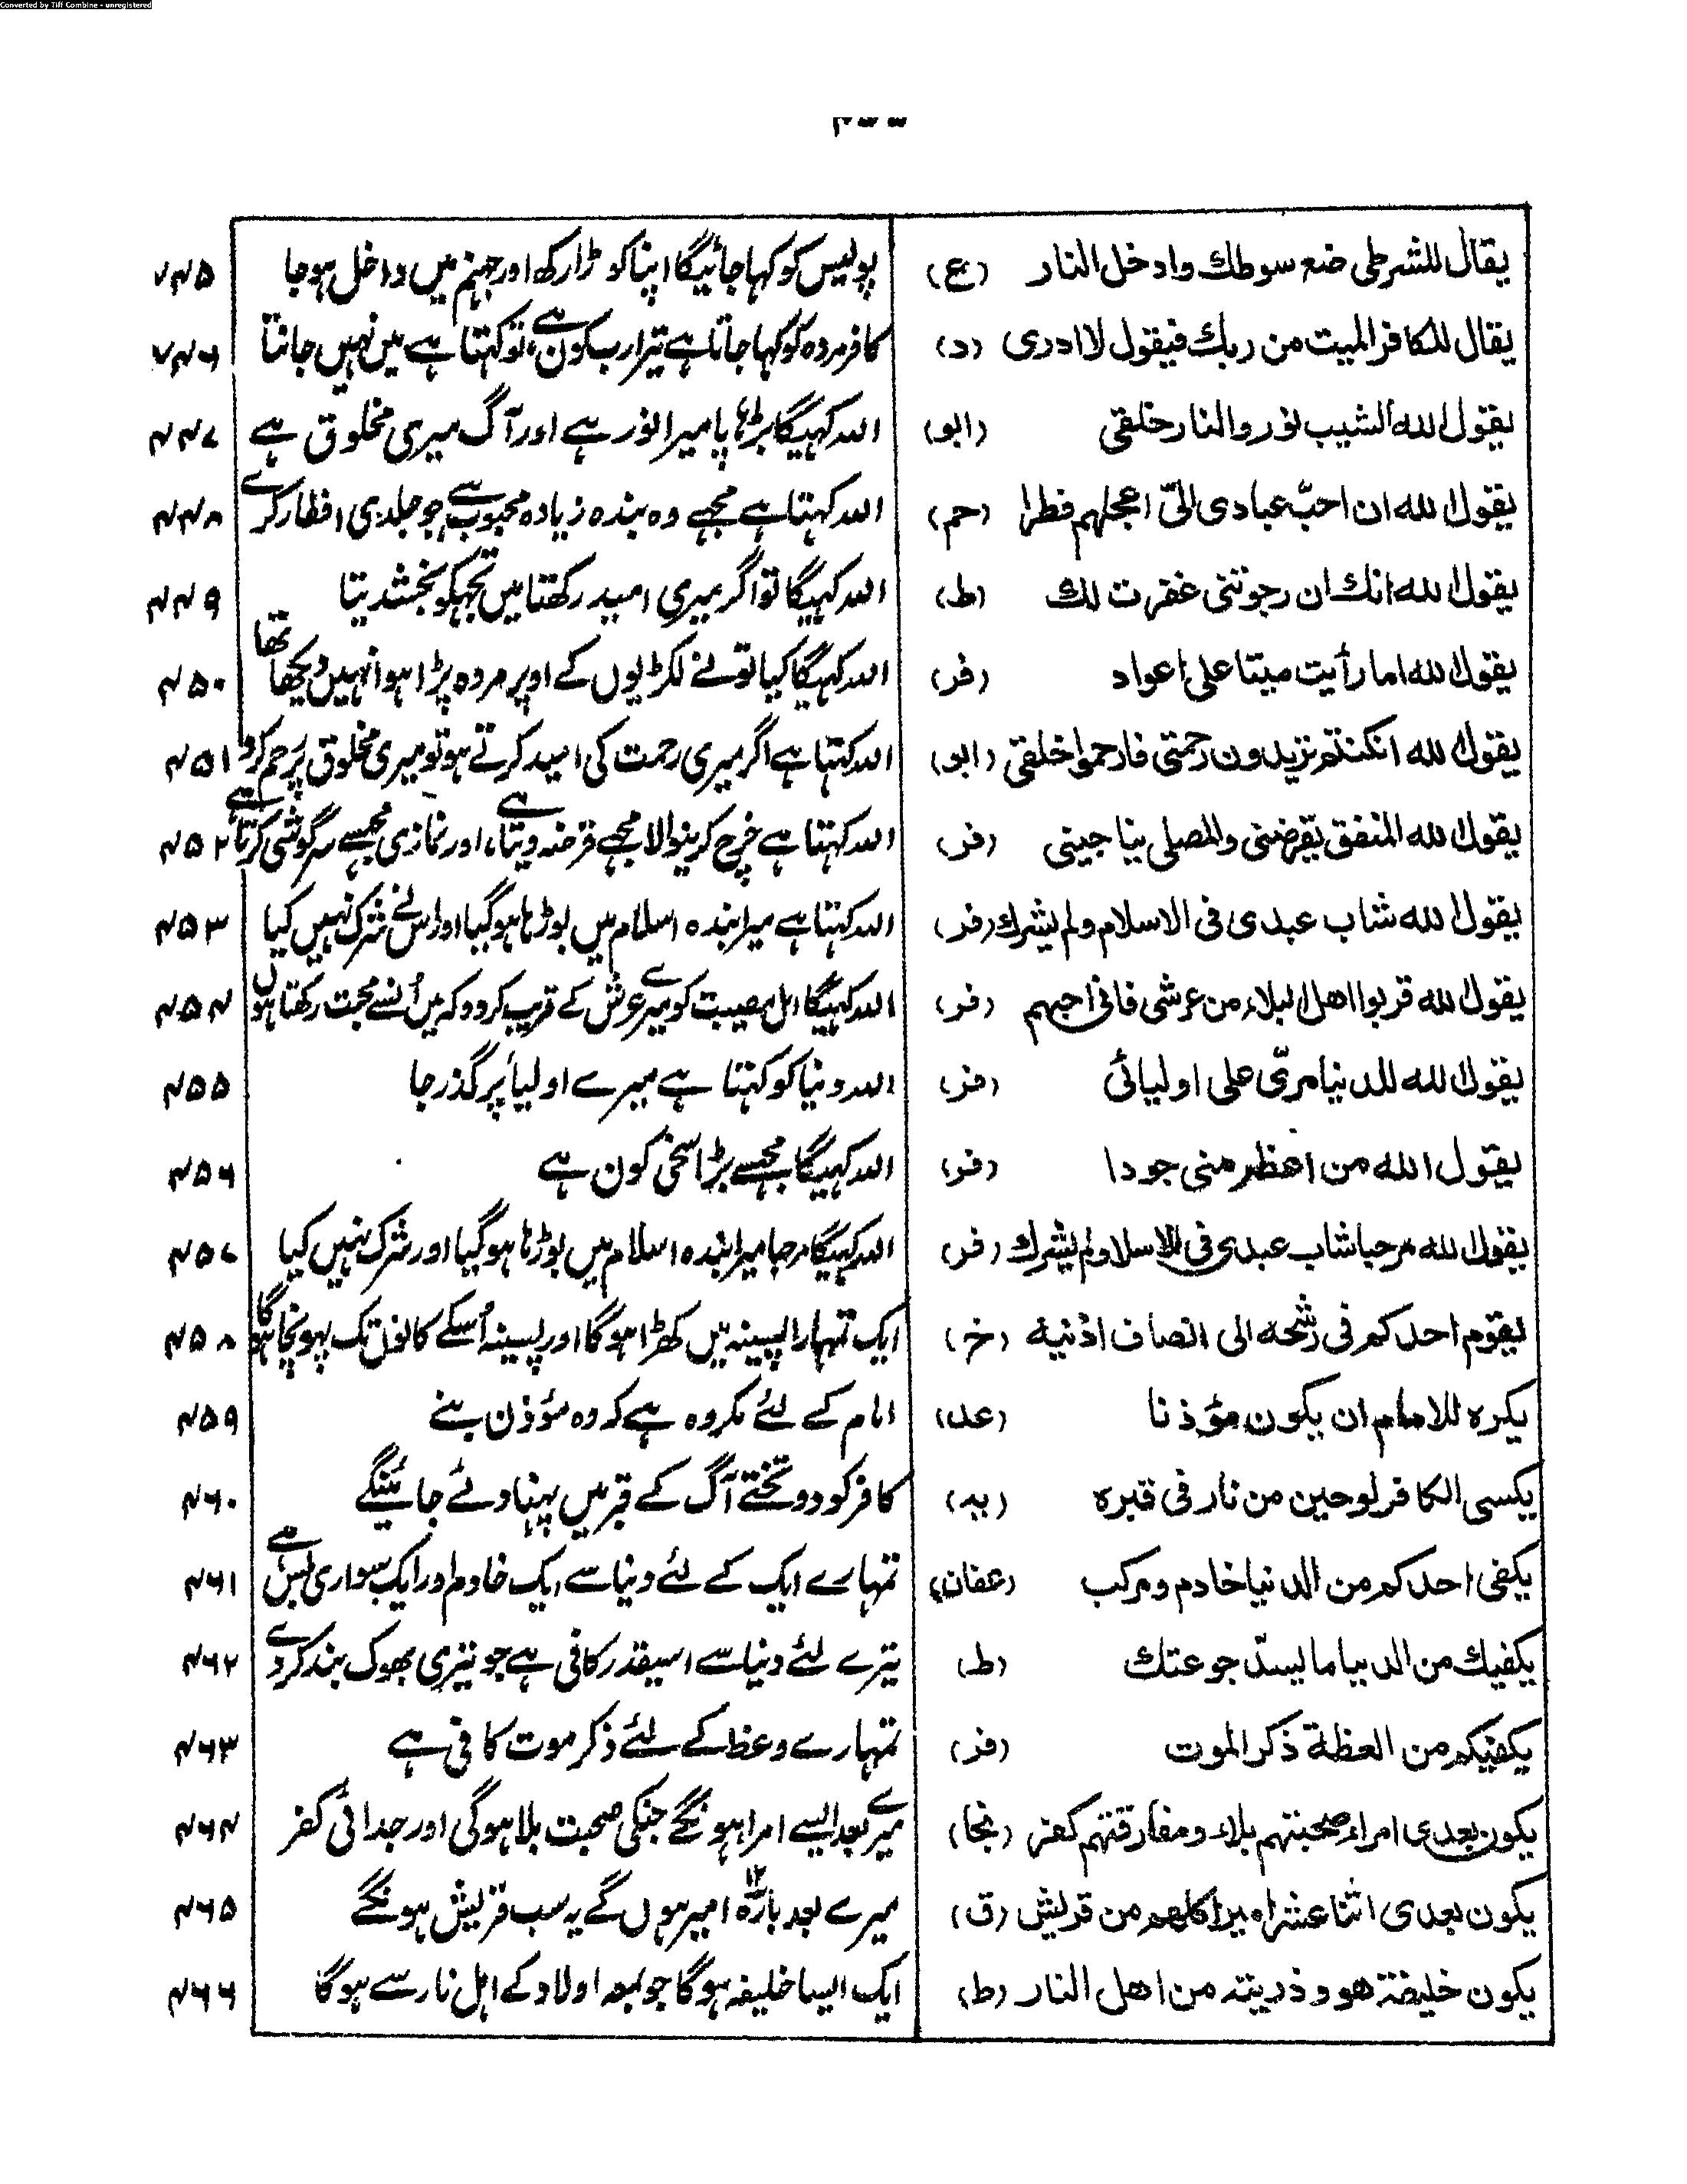 Converted by Tiff Combine - unregistered
يقال للشرطى ضع سوطك وادخل النار (ع) پولیس کو کہا جائیگا اپنا کوڑا رکھ اور جہنم میں داخل ہو جا ۷۴۵
يقال للكافر الميت من ربك فيقول لا ادرى (د) کافر مردہ کو کہا جاتا ہے تیرا رب کون ہے، تو کہتا ہے میں نہیں جانتا ۷۴۶
يقول الله الشيب نور والنار خلقى (ابو) اللہ کہیگا بڑہاپا میرا نور ہے اور آگ میری مخلوق ہے ۴۴۷
يقول الله ان احبّ عبادى الىّ اعجلهم فطرا (حم) اللہ کہتا ہے مجہے وہ بندہ زیادہ محبوب ہے جو جلدی افطار کرے ۴۴۸
يقول الله انك ان رجوتنى غفرت لك (ط) اللہ کہیگا تو اگر میری امید رکھتا میں تجہکو بخشدیتا ۴۴۹
يقول الله اما رأيت ميتا على اعواد (فر) اللہ کہیگا کیا تو نے لکڑیوں کے اوپر مردہ پڑا ہوا نہیں دیکھا تھا ۴۵۰
يقول الله ان كنتم تريدون رحمتى فارحموا خلقى (ابو) اللہ کہتا ہے اگر میری رحمت کی امید کرتے ہو تو میری مخلوق پر رحم کرو ۴۵۱
يقول الله المنفق يقرضنى والمصلى يناجينى (فر) اللہ کہتا ہے خرچ کرینوالا مجہے قرضہ دیتا ہے، اور نمازی مجہسے سرگوشی کرتا ہے ۴۵۲
يقول الله شاب عبدى فى الاسلام ولم يشرك (فر) اللہ کہتا ہے میرا بندہ اسلام میں بوڑہا ہو گیا اور اس نے شرک نہیں کیا ۴۵۳
يقول الله قربوا اهل البلاء من عرشى فانى احبهم (فر) اللہ کہیگا اہل مصیبت کو میرے عرش کے قریب کر دو کہ میں اُنسے محبت رکھتا ہوں ۴۵۴
يقول الله للدنيا مرّى على اوليائى (فر) اللہ دنیا کو کہتا ہے میرے اولیأ پر گذر جا ۴۵۵
يقول الله من اعظم منى جودا (فر) اللہ کہیگا مجہسے بڑا سخی کون ہے ۴۵۶
يقول الله مرحبا شاب عبدى فى الاسلام ولم يشرك (فر) اللہ کہیگا مرحبا میرا بندہ اسلام میں بوڑہا ہو گیا اور شرک نہیں کیا ۴۵۷
يقوم احدكم فى رشحه الى انصاف اذنيه (خ) ایک تمہارا پسینہ میں کھڑا ہوگا اور پسینہ اُسکے کانوں تک پہونچا ہوگا ۴۵۸
يكره للامام ان يكون مؤذنا (عد) امام کے لئے مکروہ ہے کہ وہ مؤذن بنے ۴۵۹
يكسى الكافر لوحين من نار فى قبره (يه) کافر کو دو تختے آگ کے قبر میں پہنا دئے جائینگے ۴۶۰
يكفى احدكم من الدنيا خادم ومركب (عفان) تمہارے ایک کے لئے دنیا سے ایک خادم اور ایک سواری بس ہے ۴۶۱
يكفيك من الدنيا ما يسدّ جوعتك (ط) تیرے لئے دنیا سے اسیقدر کافی ہے جو تیری بھوک بند کر دے ۴۶۲
يكفيكم من العظة ذكر الموت (فر) تمہارے وعظ کے لئے ذکر موت کافی ہے ۴۶۳
يكون بعدى امراء صحبتهم بلاء ومفارقتهم كفر (نجا) میرے بعد ایسے امرا ہونگے جنکی صحبت بلا ہوگی اور جدائی کفر ۴۶۴
يكون بعدى اثنا عشر اميرا كلهم من قريش (ق) میرے بعد بارہ ۱۲ امیر ہوں گے یہ سب قریش ہونگے ۴۶۵
يكون خليفة هو وذريته من اهل النار (ط) ایک ایسا خلیفہ ہوگا جو بمعہ اولاد کے اہل نار سے ہوگا ۴۶۶